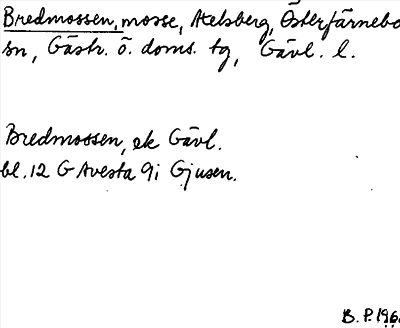 Bredmossen, mosse, Åkelsberg, Österfärnebo
sn, Gästr. ö. doms. tg, Gävl. l.
Bredmossen, ek Gävl.
bl. 12 G Avesta 9i Gjusen.
B. P. 196